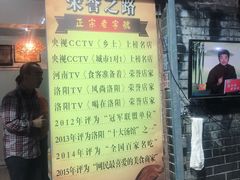 荣誉之路
正宗老字号
央视CCTV《乡土》上榜名店
央视CCTV《城市1对1》上榜名店
河南TV《食客准备着》荣誉店家
洛阳TV《风尚洛阳》荣誉店家
洛阳TV《喝在洛阳》荣誉店家
2012年评为"冠军联盟单位"
2013年评为洛阳"十大汤馆"之一
2014年评为"全国百家名吃"
2015年评为"网民最喜爱的美食商家"